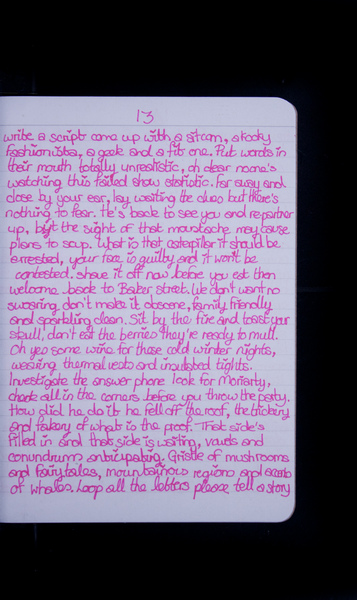 13
write a script come up with a sitcom, a kooky
fashionista, a geek and a fit one. Put words in
their mouth totally unrealistic, oh dear none's
watching this failed show statistic. Far away and
close by your ear, lay waiting the clues but there's
nothing to fear. He's back to see you and repartner
up, but the sight of that moustache may cause
plans to soup. What is that caterpillar it should be
arrested, your face is guilty and it won't be
contested. shave it off now before you eat then
welcome back to Baker street. We don't want no
swearing don't make it obscene, family friendly
and sparkling clean. Sit by the fire and toast your
skull, don't eat the berries they're ready to mull.
Oh yes some wine for those cold winter nights,
wearing thermal vests and insulated tights.
Investigate the answer phone look for Moriarty,
check all in the corners before you throw the party.
How did he do it he fell off the roof, the trickery
and fakery of what is the proof. That side's
filled in and that side is waiting, vowels and
conundrums anticipating. Gristle of mushrooms
and fairytales, mountainous regions and
of whales. Loop all the letters please tell a story